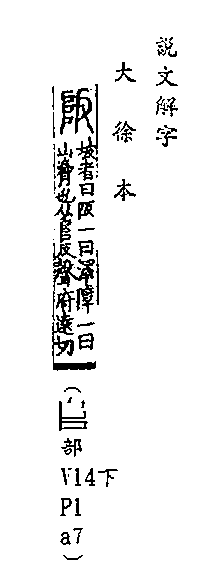 説文解字
大徐本
阪
坡者曰阪一曰澤障一曰
山脅也从𨸏反聲府遠切
(
部
V14下
P1
a7
)